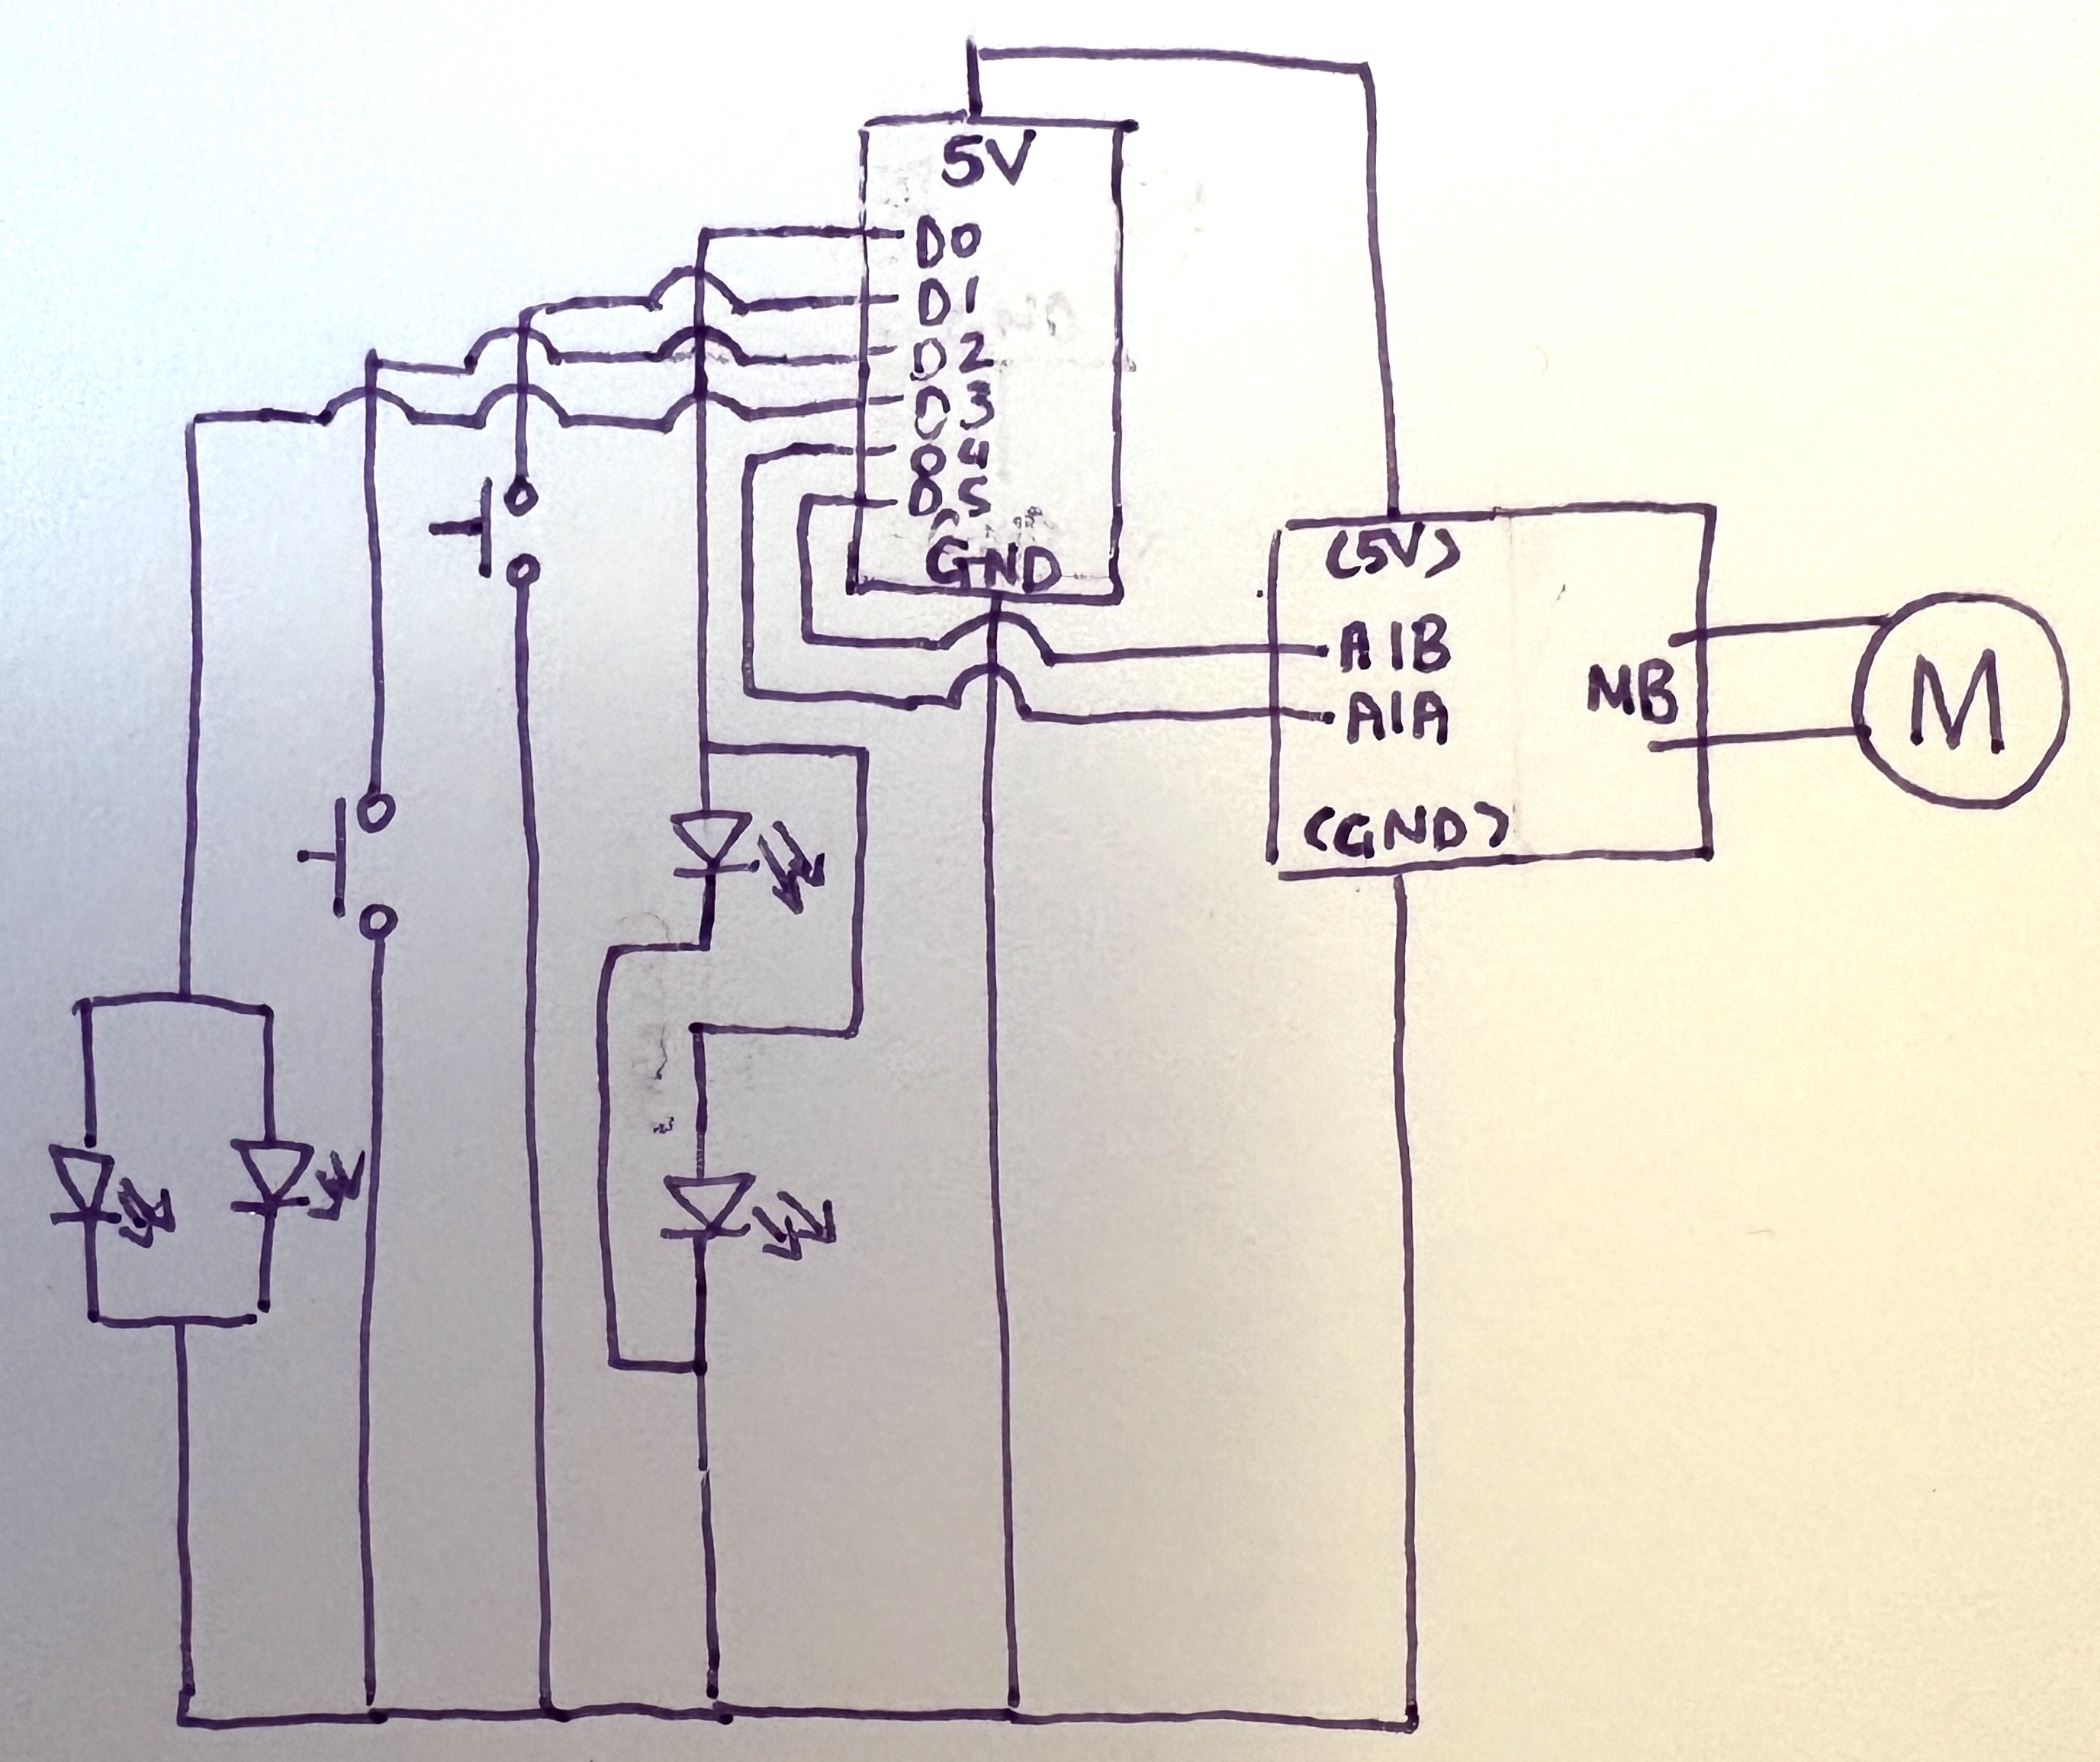 5V
D0
D1
D2
D3
D4
D5
GND
(5V)
A1B
A1A
MB
(GND)
M